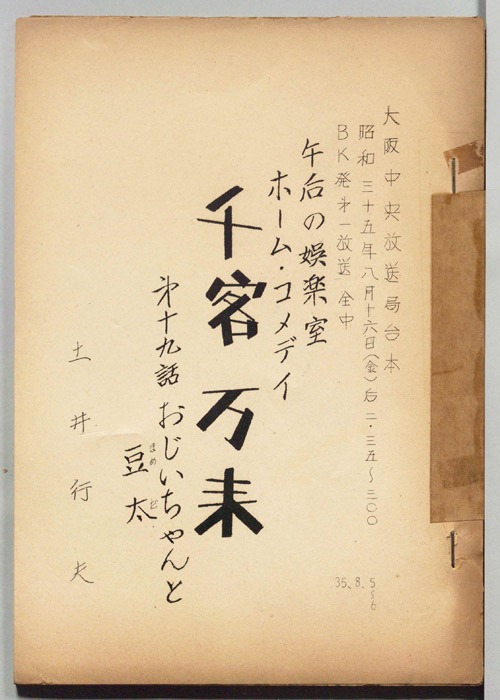 大阪中央放送局台本
昭和三十五年八月十六日(金)后二・三五〜三・〇〇
BK発才一放送 全中
午后の娯楽室
ホーム・コメデイ
千客万来
才十九話 おじいちゃんと
豆太
まめ た
土井行夫
35.8.5〜6